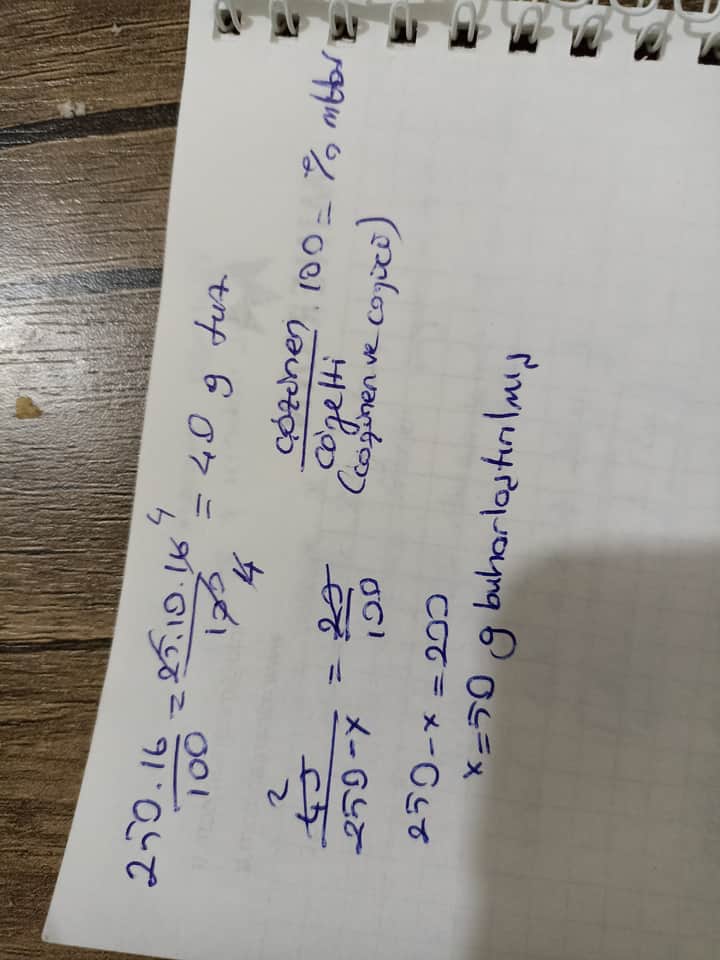 250.16/100 = 25.10.16 4/100 4 = 40 g tuz
çözünen/çözelti . 100 = % mktar
(çözünen ve çözücü)
40 2/250-x = 20/100
250-x = 200
x = 50 g buharlaştırılmış